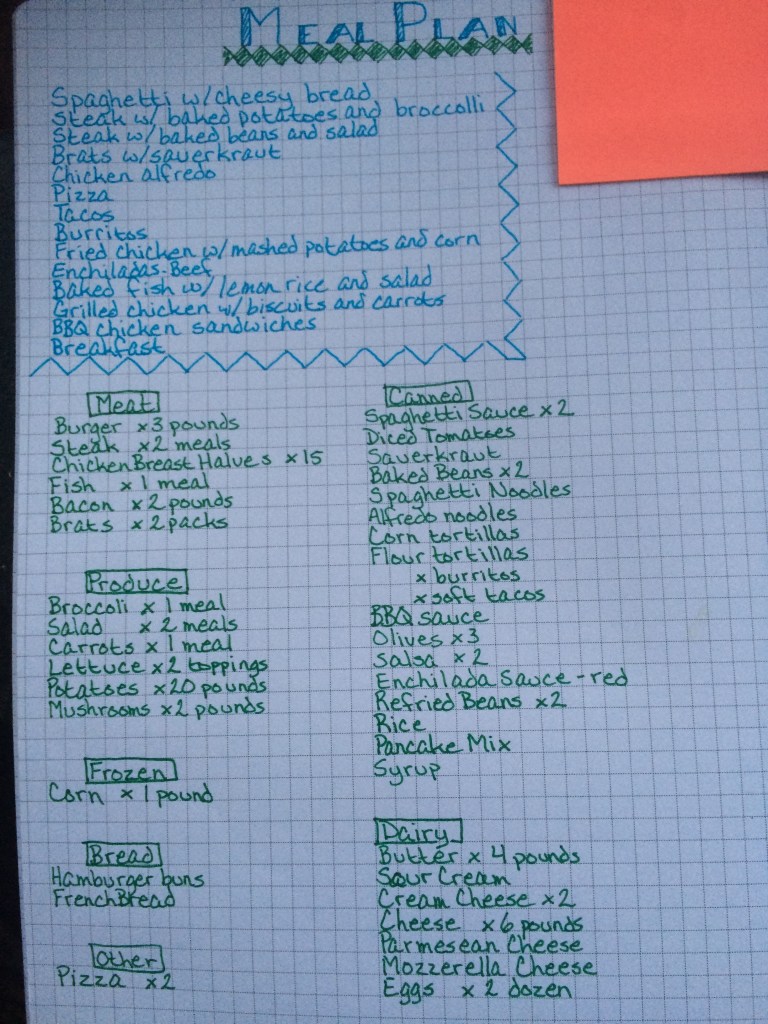 Meal Plan
Spaghetti w/cheesy bread
Steak w/ baked potatoes and broccolli
Steak w/baked beans and salad
Brats w/sauerkraut
Chicken alfredo
Pizza
Tacos
Burritos
Fried chicken w/mashed potatoes and corn
Enchiladas-Beef
Baked fish w/ lemon rice and salad
Grilled chicken w/biscuits and carrots
BBQ chicken sandwiches
Breakfast
Meat
Burger x3 pounds
Steak x2 meals
Chicken Breast Halves x15
Fish x 1 meal
Bacon x2 pounds
Brats x2 packs
Produce
Broccoli x 1 meal
Salad x 2 meals
Carrots x 1 meal
Lettuce x2 toppings
Potatoes x20 pounds
Mushrooms x2 pounds
Frozen
Corn x 1 pound
Bread
Hamburger buns
French Bread
Other
Pizza x2
Canned
Spaghetti Sauce x2
Diced Tomatoes
Sauerkraut
Baked Beans x2
Spaghetti Noodles
Alfredo noodles
Corn tortillas
Flour tortillas
x burritos
x soft tacos
BBQ sauce
Olives x3
Salsa x2
Enchilada Sauce - red
Refried Beans x2
Rice
Pancake Mix
Syrup
Dairy
Butter x 4 pounds
Sour Cream
Cream Cheese x2
Cheese x6 pounds
Parmesean Cheese
Mozzerella Cheese
Eggs x 2 dozen